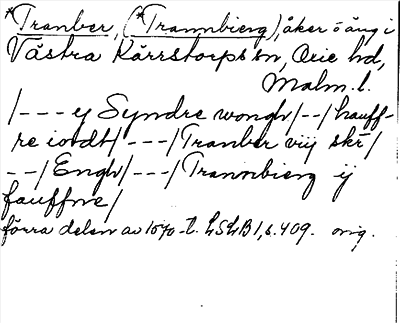 *Tranber, (*Trannbierg), åker o äng i
Västra Kärrstorps sn, Oxie hd,
Malm. l.
/---y Syndre wongh/--/hauff-
re iordt/---/Tranber vij skr/
--/Engh/---/Trannbierg ij
fauffne/
förra delen av 1570-t. LSLB1, s. 409. orig.